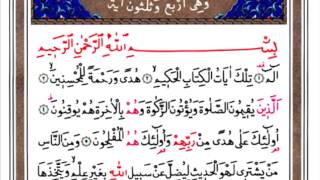 وَهِىَ اَرْبَعٌ وَثَلٰثُونَ اٰيَةً
بِسْــــــــمِ اللّٰهِ الرَّحْمٰنِ الرَّحٖيمِ
الٓمٓ ۝١ تِلْكَ اٰيَاتُ الْكِتَابِ الْحَكٖيمِ ۝٢ هُدًى وَرَحْمَةً لِلْمُحْسِنٖينَ ۝٣
اَلَّذٖينَ يُقٖيمُونَ الصَّلٰوةَ وَيُؤْتُونَ الزَّكٰوةَ وَهُمْ بِالْاٰخِرَةِ هُمْ يُوقِنُونَ ۝٤
اُولٰٓئِكَ عَلٰى هُدًى مِنْ رَبِّهِمْ وَاُولٰٓئِكَ هُمُ الْمُفْلِحُونَ ۝٥ وَمِنَ النَّاسِ
مَنْ يَشْتَرٖى لَهْوَ الْحَدٖيثِ لِيُضِلَّ عَنْ سَبٖيلِ اللّٰهِ بِغَيْرِ عِلْمٍ وَيَتَّخِذَهَا